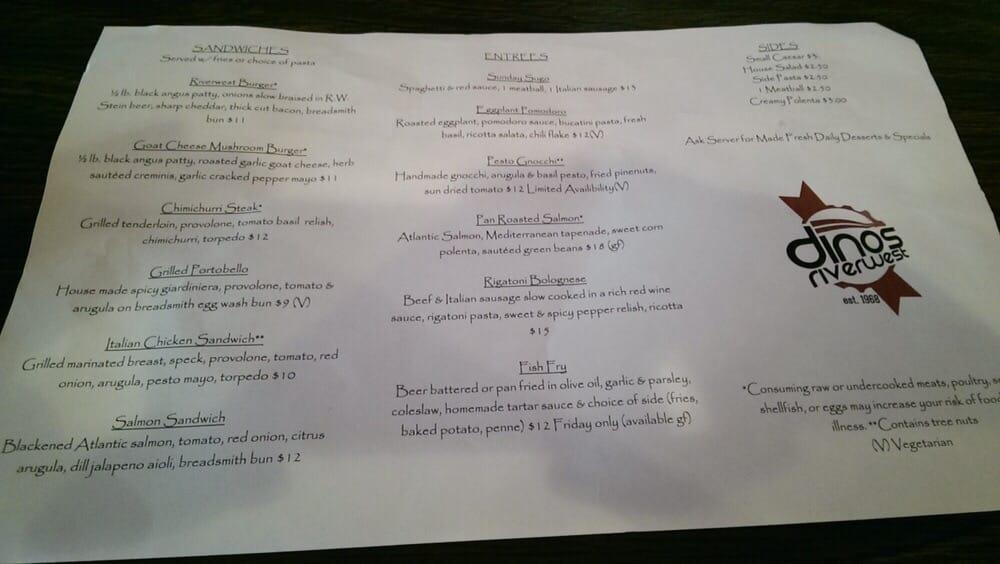 SANDWICHES
Served w/ fries or choice of pasta
Riverwest Burger*
½ lb. black angus patty, onions slow braised in R.W.
Stein beer, sharp cheddar, thick cut bacon, breadsmith
bun $11
Goat Cheese Mushroom Burger*
½ lb. black angus patty, roasted garlic goat cheese, herb
sautéed creminis, garlic cracked pepper mayo $11
Chimichurri Steak*
Grilled tenderloin, provolone, tomato basil relish,
chimichurri, torpedo $12
Grilled Portobello
House made spicy giardiniera, provolone, tomato &
arugula on breadsmith egg wash bun $9 (V)
Italian Chicken Sandwich**
Grilled marinated breast, speck, provolone, tomato, red
onion, arugula, pesto mayo, torpedo $10
Salmon Sandwich
Blackened Atlantic salmon, tomato, red onion, citrus
arugula, dill jalapeno aioli, breadsmith bun $12
ENTREES
Sunday Sugo
Spaghetti & red sauce, 1 meatball, 1 Italian sausage $13
Eggplant Pomodoro
Roasted eggplant, pomodoro sauce, bucatini pasta, fresh
basil, ricotta salata, chili flake $12(V)
Pesto Gnocchi**
Handmade gnocchi, arugula & basil pesto, fried pinenuts,
sun dried tomato $12 Limited Availibility(V)
Pan Roasted Salmon*
Atlantic Salmon, Mediterranean tapenade, sweet corn
polenta, sautéed green beans $18 (gf)
Rigatoni Bolognese
Beef & Italian sausage slow cooked in a rich red wine
sauce, rigatoni pasta, sweet & spicy pepper relish, ricotta
$15
Fish Fry
Beer battered or pan fried in olive oil, garlic & parsley,
coleslaw, homemade tartar sauce & choice of side (fries,
baked potato, penne) $12 Friday only (available gf)
SIDES
Small Caesar $3.
House Salad $2.50
Side Pasta $2.50
1 Meatball $2.50
Creamy Polenta $3.00
Ask Server for Made Fresh Daily Desserts & Specials
dinos
riverwest
est. 1968
*Consuming raw or undercooked meats, poultry,
shellfish, or eggs may increase your risk of food
illness. **Contains tree nuts
(V) Vegetarian